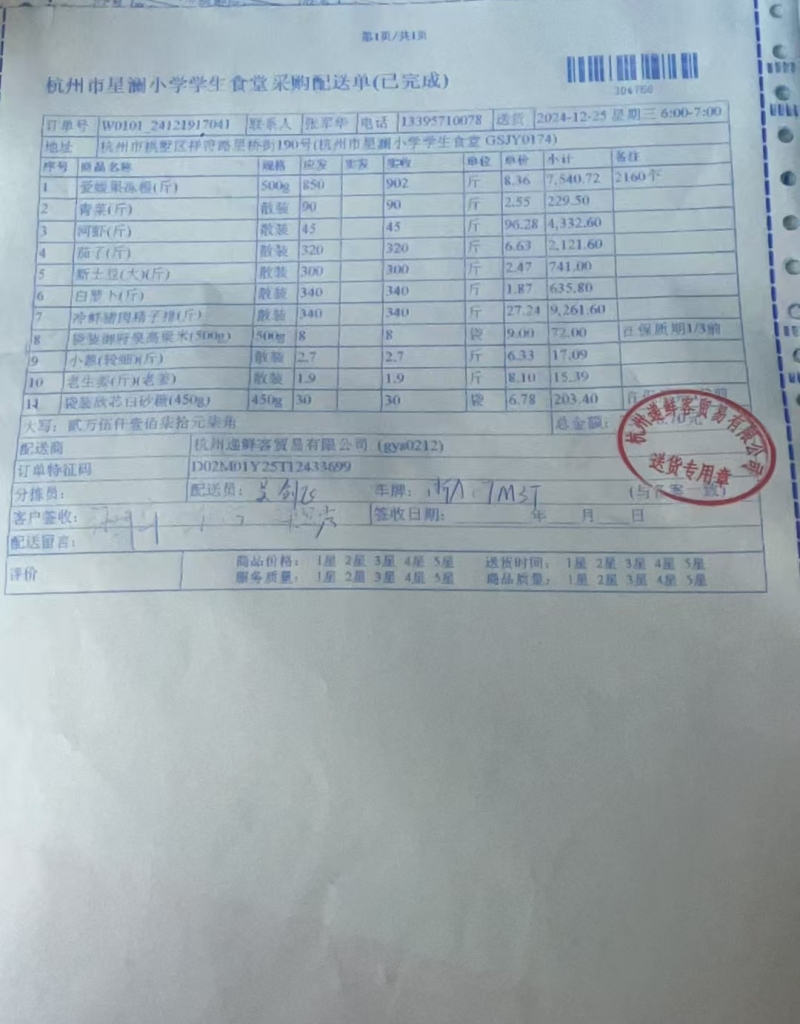 第1页/共1页
杭州市星澜小学学生食堂采购配送单(已完成)
304760
订单号 W0101_24121917041 联系人 张军华 电话 13395710078 送货 2024-12-25 星期三 6:00-7:00
地址 杭州市拱墅区祥符路星桥街190号(杭州市星澜小学学生食堂 GSJY0174)
序号 商品名称 规格 应发 实发 实收 单位 单价 小计 备注
1 爱媛果冻橙(斤) 500g 850 902 斤 8.36 7,540.72 2160个
2 青菜(斤) 散装 90 90 斤 2.55 229.50
3 河虾(斤) 散装 45 45 斤 96.28 4,332.60
4 茄子(斤) 散装 320 320 斤 6.63 2,121.60
5 新土豆(大)(斤) 散装 300 300 斤 2.47 741.00
6 白萝卜(斤) 散装 340 340 斤 1.87 635.80
7 冷鲜猪肉精子排(斤) 散装 340 340 斤 27.24 9,261.60
8 袋装御府泉高粱米(500g) 500g 8 8 袋 9.00 72.00 在保质期1/3前
9 小葱(较细)(斤) 散装 2.7 2.7 斤 6.33 17.09
10 老生姜(斤)(老姜) 散装 1.9 1.9 斤 8.10 15.39
11 袋装欣芯白砂糖(450g) 450g 30 30 袋 6.78 203.40
大写: 贰万伍仟壹佰柒拾元柒角 总金额:
配送商 杭州递鲜客贸易有限公司 (gys0212)
订单特征码 D02M01Y25T12433699
分拣员: 配送员: 车牌: (与备案一致)
客户签收: 签收日期: 年 月 日
配送留言:
评价 商品价格: 1星 2星 3星 4星 5星 送货时间: 1星 2星 3星 4星 5星
服务质量: 1星 2星 3星 4星 5星 商品质量: 1星 2星 3星 4星 5星
杭州递鲜客贸易有限公司
送货专用章